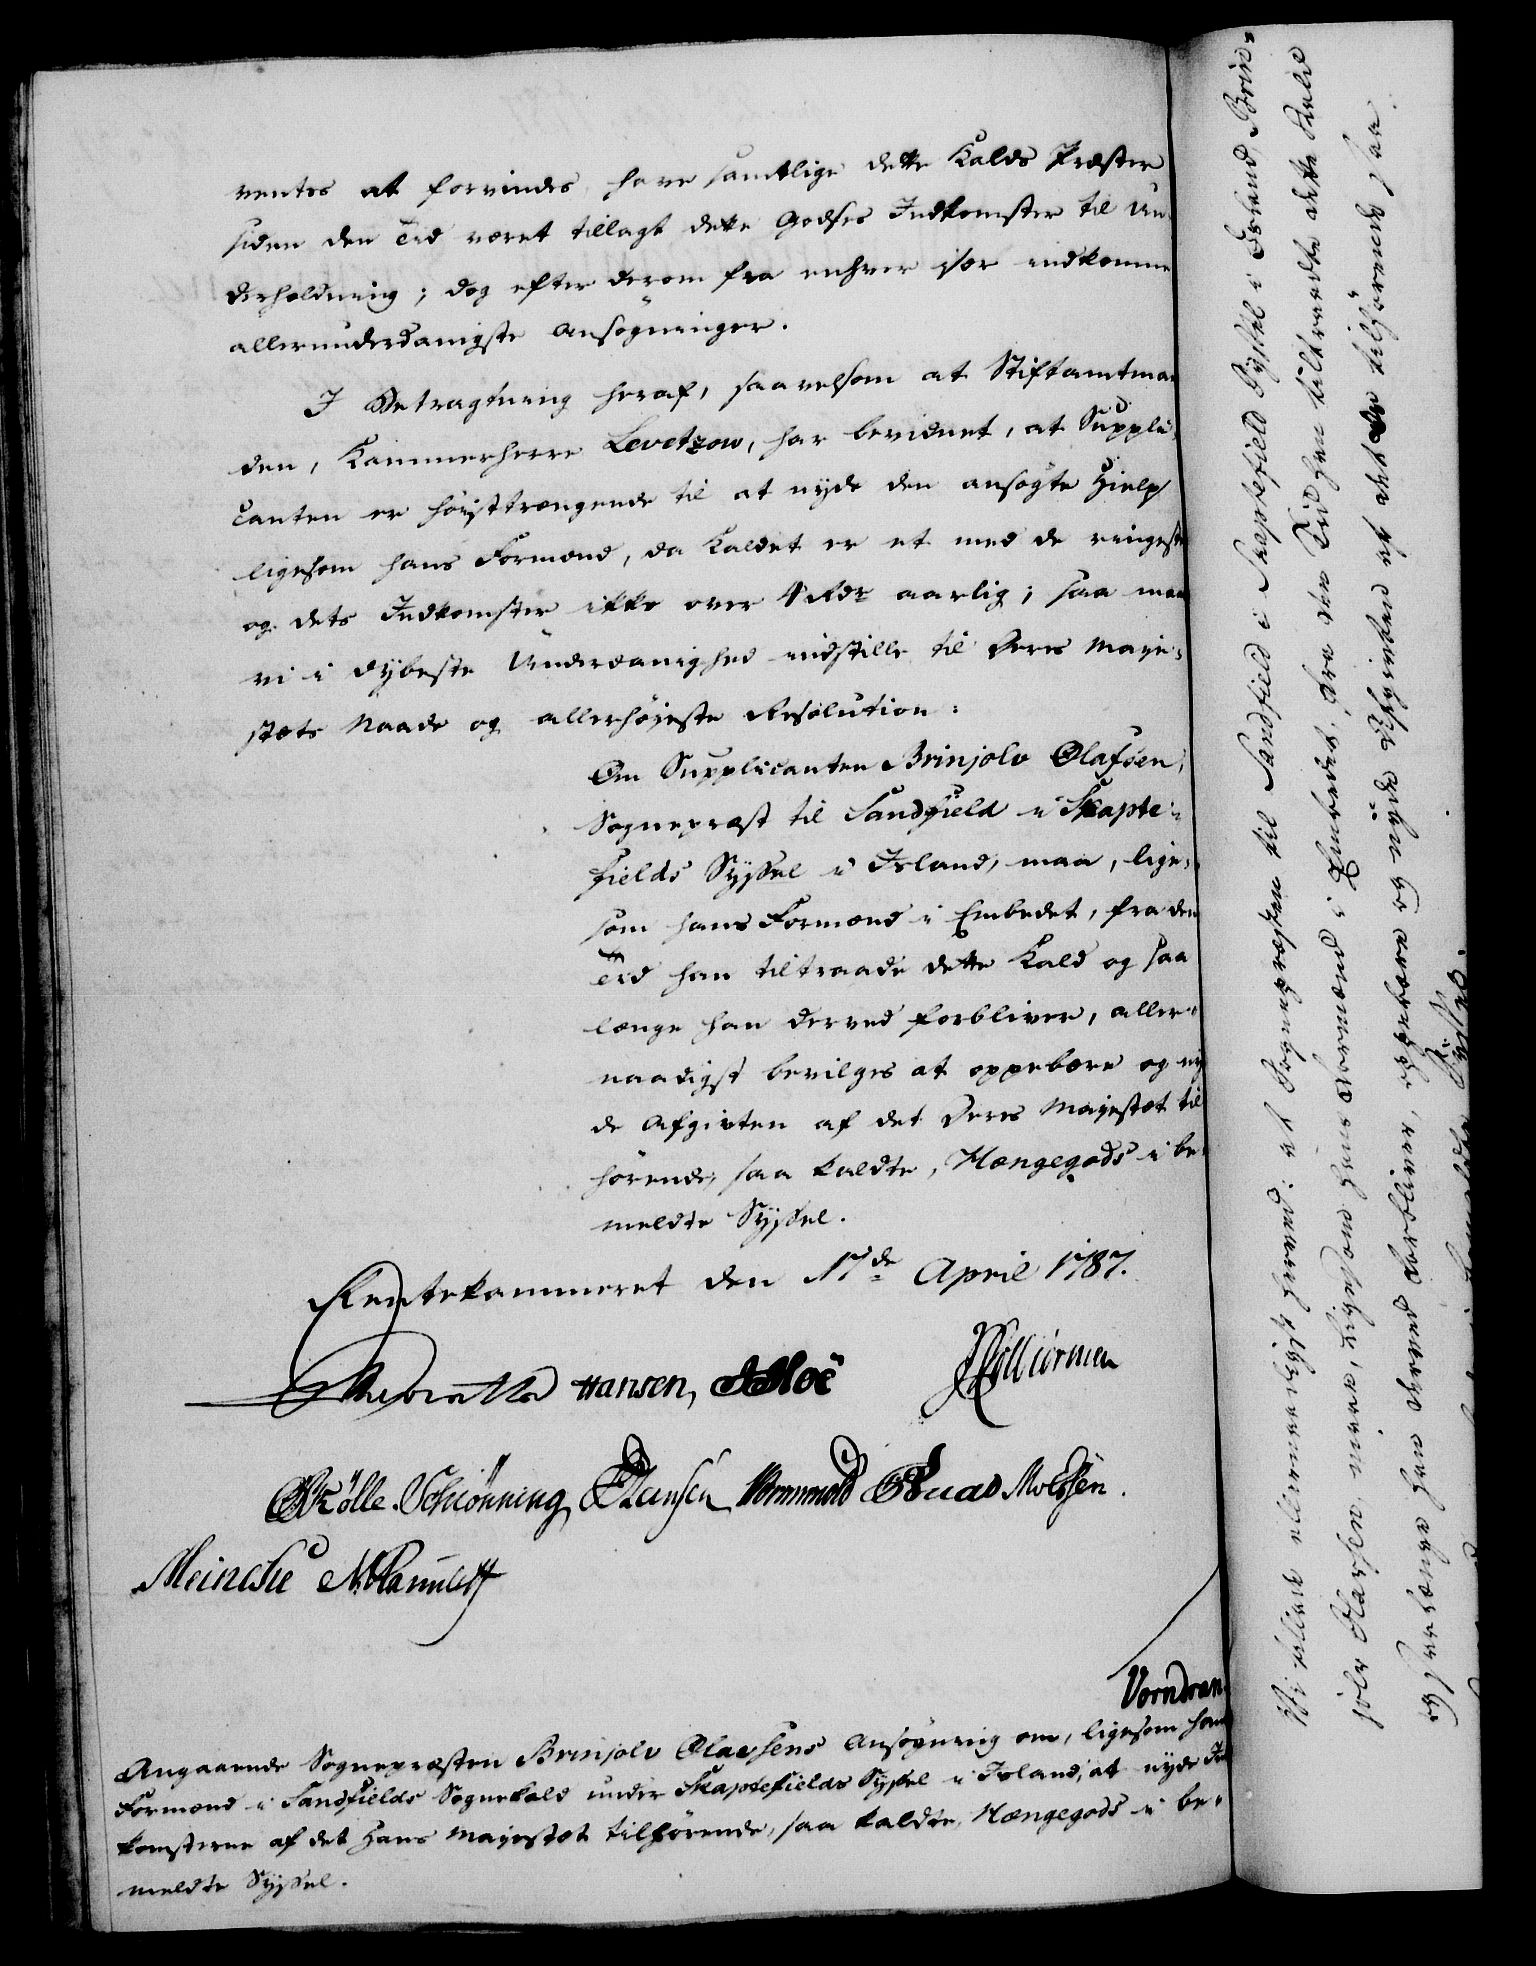 ventes at forvindes, have samtlige dette Kalds Præster
siden den Tid været tillagt dette Godses Indkomster til Un-
derholdning; dog efter derom fra enhver især indkomne
allerunderdanigste Ansøgninger.
I Betragtning heraf, saavelsom at Stiftamtman
den, Kammerherre Levetzow, har bevidnet, at Suppli-
canten er høisttrængende til at nyde den ansøgte Hielp,
ligesom hans Formænd, da Kaldet er et med de ringeste
og dets Indkomster ikke over 4 Rdr aarlig; saa maae
vi i dybeste Underdanighed indstille til Deres Maje-
stæts Naade og allerhøjeste Resolution:
Om Supplicanten Brinjolv Olafsen,
Sognepræst til Sandfield i Skapte-
fields Syssel i Island, maa, lige-
som hans Formænd i Embedet, fra den
Tid han tiltraade dette Kald og saa
længe han derved forbliver, aller-
naadigst bevilges at oppebære og ny-
de Afgivten af det Deres Majestæt til
hørende, saa kaldte, Mængegods i be-
meldte Syssel.
Rentekammeret den 17de April 1787.
Hansen, Moë
Kølle. Schiønning Hansen Brummold Buas Molssen.
Meincke
Vorndran
Angaaende Sognepræsten Brinjolv Olavsens Ansøgning om, ligesom hans
Formænd i Sandfields Sognekald under Skaptefields Syssel i Island, at nyde Ind
komsterne af det Hans Majestæt tilhørende, saa kaldte, Mængegods i be-
meldte Syssel.
Vi ville allernaadigst herved: at Sognepræsten til Sandfield i Skaptefield Syssel i Island, Brin-
jolv Olafsen, maae, ligesom hans Formænd i Embedet, fra den Tid han tiltraadte dette Kald
og saalænge han derved forbliver, oppebære og nyde Afgivten af det Os tilhørende saa
bemeldte Syssel.